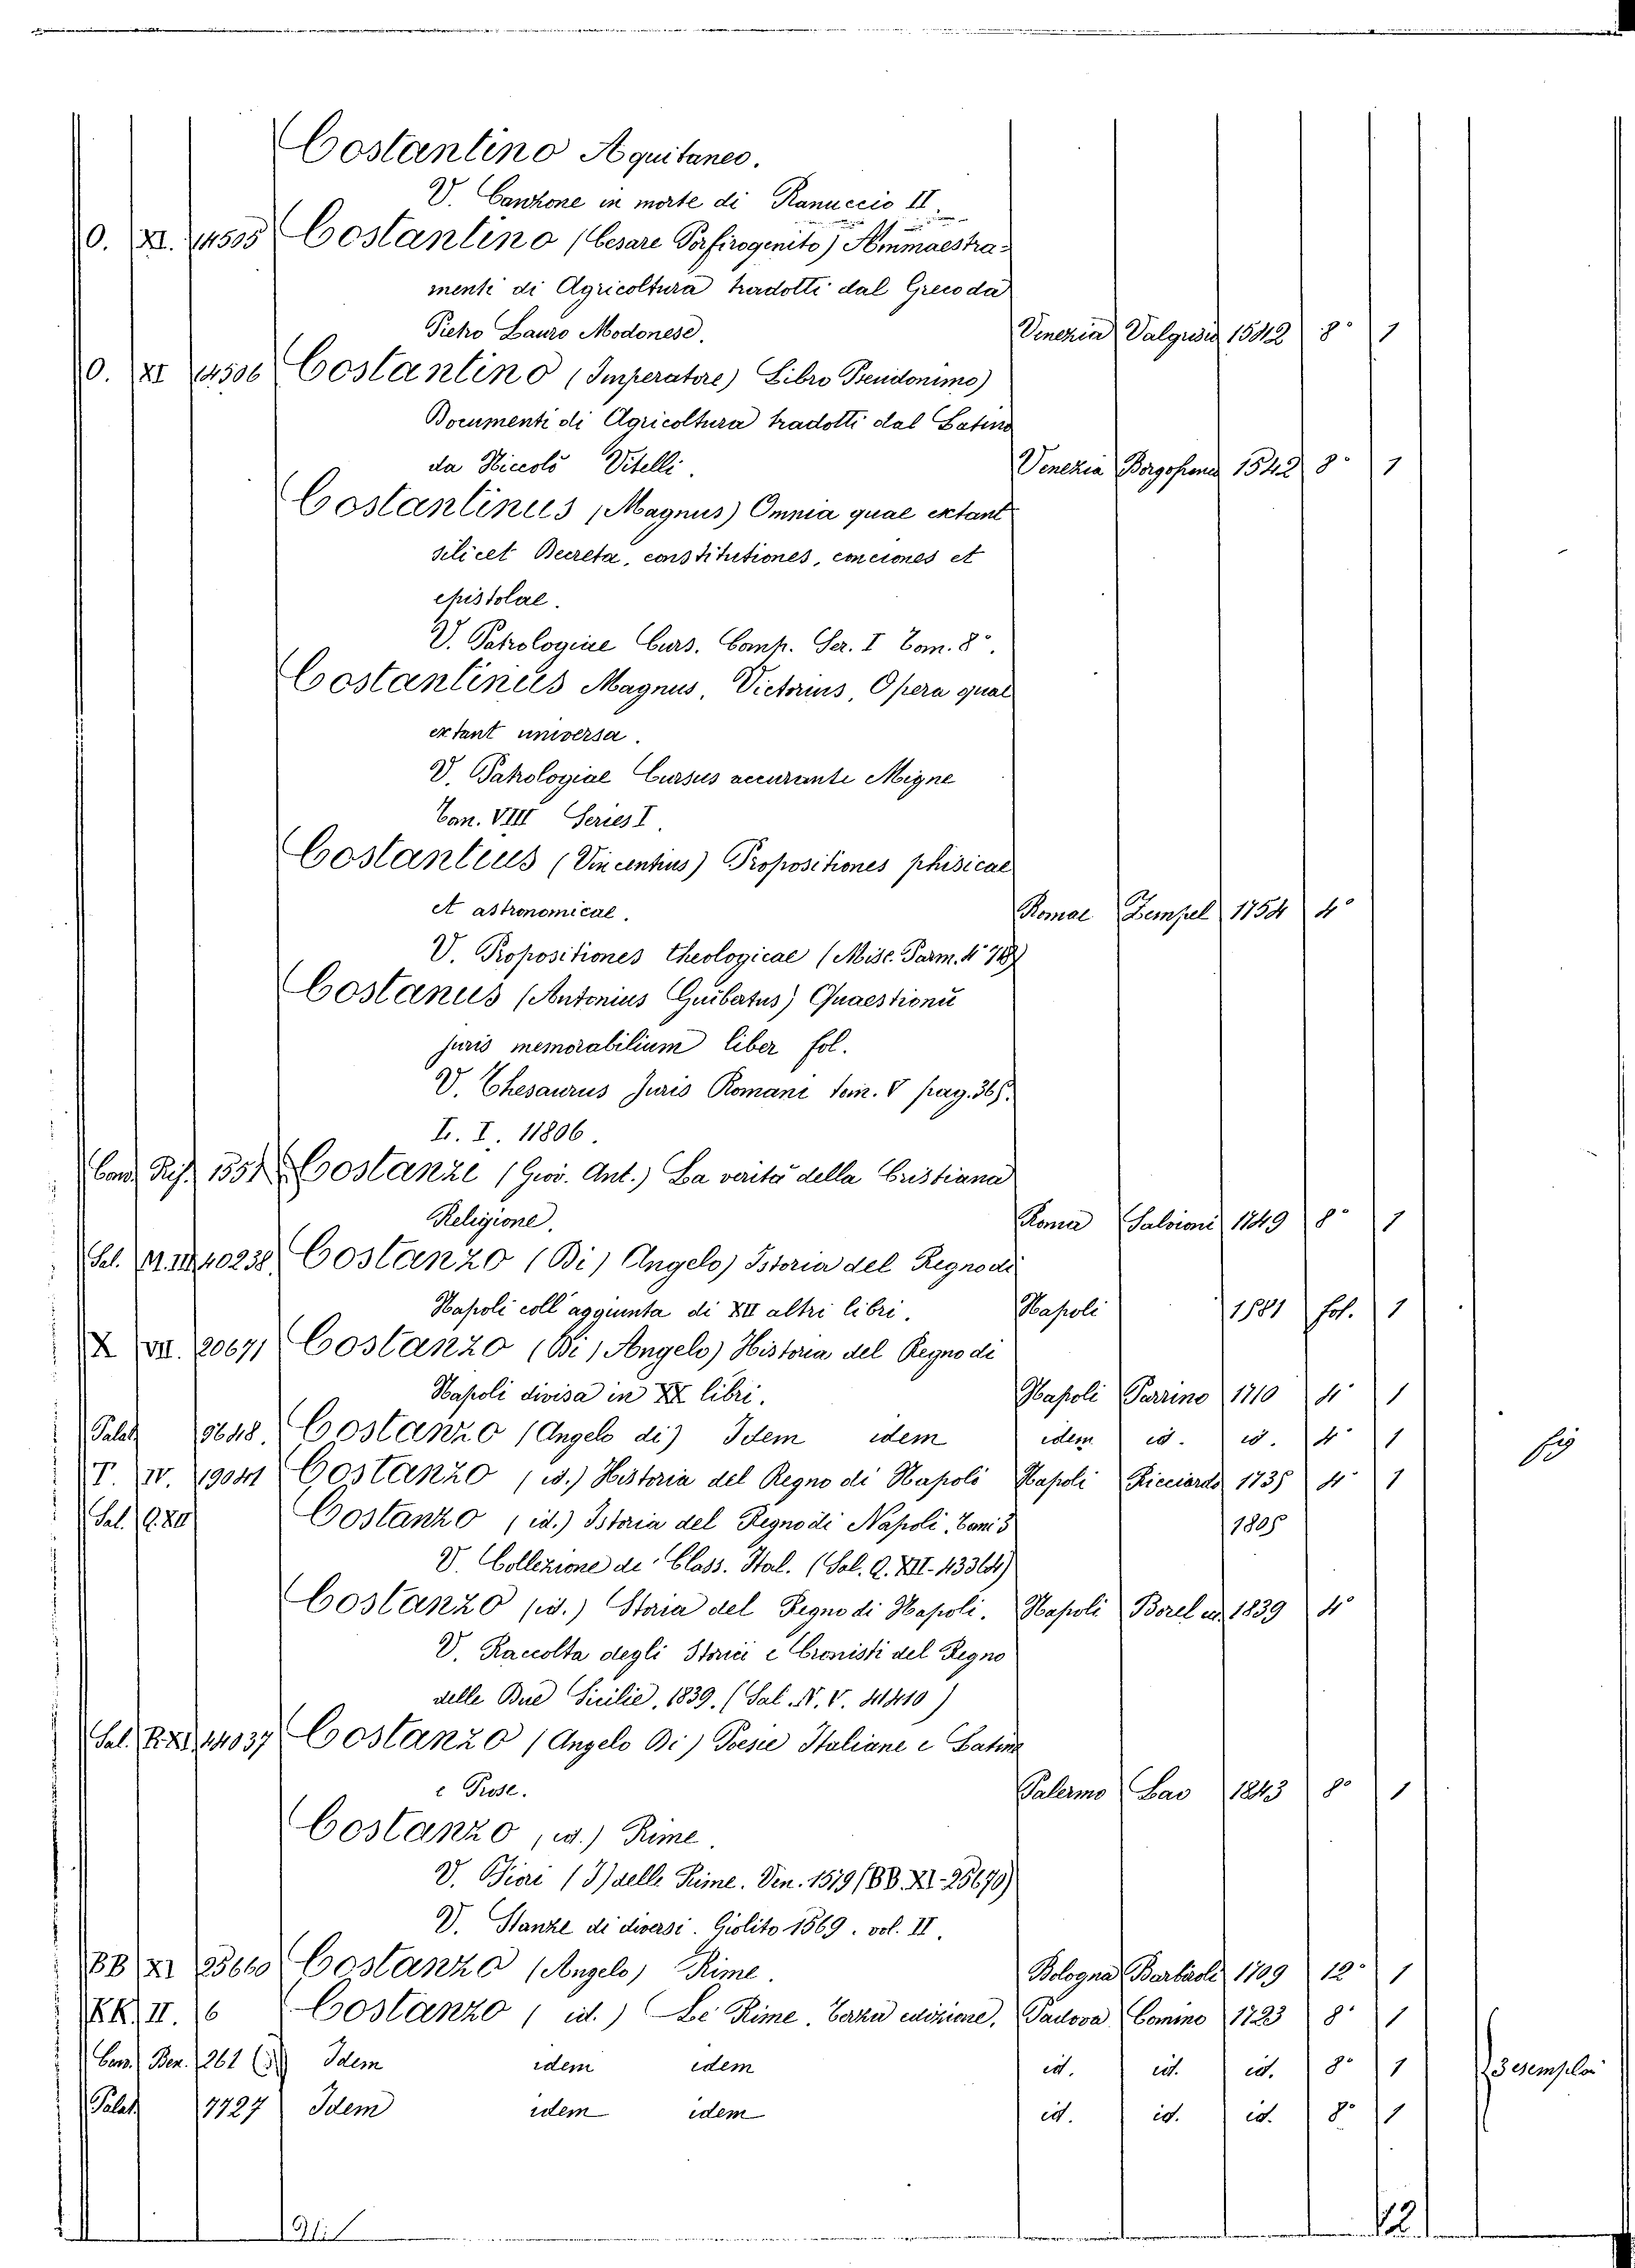 Costantino Aquitaneo.
V. Canzone in morte di Ranuccio II.
O. XI. 14505 Costantino (Cesare Porfirogenito) Ammaestra-
menti di Agricoltura tradotti dal Greco da
Pietro Lauro Modonese. Venezia Valgrisi 1542 8° 1
O. XI 14506 Costantino (Imperatore) Libro Pseudonimo)
Documenti di Agricoltura tradotti dal Latino
da Niccolò Vitelli. Venezia 1542 8° 1
Costantinus (Magnus) Omnia quae extant
silicet Decreta, constitutiones, conciones et
epistolae.
V. Patrologiae Curs. Comp. Ser. I Tom. 8°.
Costantinus Magnus, Victorius, Opera quae
extant universa.
V. Patrologiae Cursus accurante Migne
Tom. VIII Series I.
Costantius (Vincentius) Propositiones phisicae
et astronomicae. Romae Zempel 1754 4°
V. Propositiones theologicae (Misc. Parm. 4°
Costanus (Antonius Guibertus) Quaestionū
juris memorabilium liber fol.
V. Thesaurus Juris Romani tom. V pag. 365.
I. I. 11806.
Cons. Rif. 1551 Costanze (Giov. Ant.) La verità della Cristiana
Religione. Roma Salvioni 1749 8° 1
Sal. M. III 40238 Costanzo (Di) Angelo) Istoria del Regno di
Napoli coll'aggiunta di XII altri libri. Napoli 1581 fol. 1
X VII. 20671 Costanzo (Di) Angelo) Historia del Regno di
Napoli divisa in XX libri. Napoli Parrino 1710 4° 1
Palat 9648. Costanzo (Angelo di) Idem idem idem id. id. 4° 1
T. IV. 19041 Costanzo (id.) Historia del Regno di Napoli Napoli Ricciardo 1735 4° 1
Sal. Q. XII Costanzo (id.) Istoria del Regno di Napoli, Tomi 3 1805
V. Collezione de' Class. Ital. (Sal. Q. XII. 43364)
Costanzo (id.) Storia del Regno di Napoli. Napoli Borel ed. 1839 4°
V. Raccolta degli Storici e Cronisti del Regno
delle Due Sicilie, 1839. (Sal. N. V. 41410)
Sal. R. XI. 44037 Costanzo (Angelo Di) Poesie Italiane e Latine
e Prose. Palermo Lao 1843 8° 1
Costanzo (id.) Rime.
V. Fiori (I) delle Rime. Ven. 1579 (BB. XI. 25670)
V. Stanze di diversi. Giolito 1569. vol. II.
BB XI 25660 Costanzo (Angelo) Rime. Bologna Barbiroli 1709 12° 1
KK. II. 6 Costanzo (id.) Le Rime. Terza edizione. Padova Comino 1723 8° 1
Cass. Ben. 1261 Idem idem idem id. id. id. 8° 1 3 esemplari
Palat 7727 Idem idem idem id. id. id. 8° 1
12